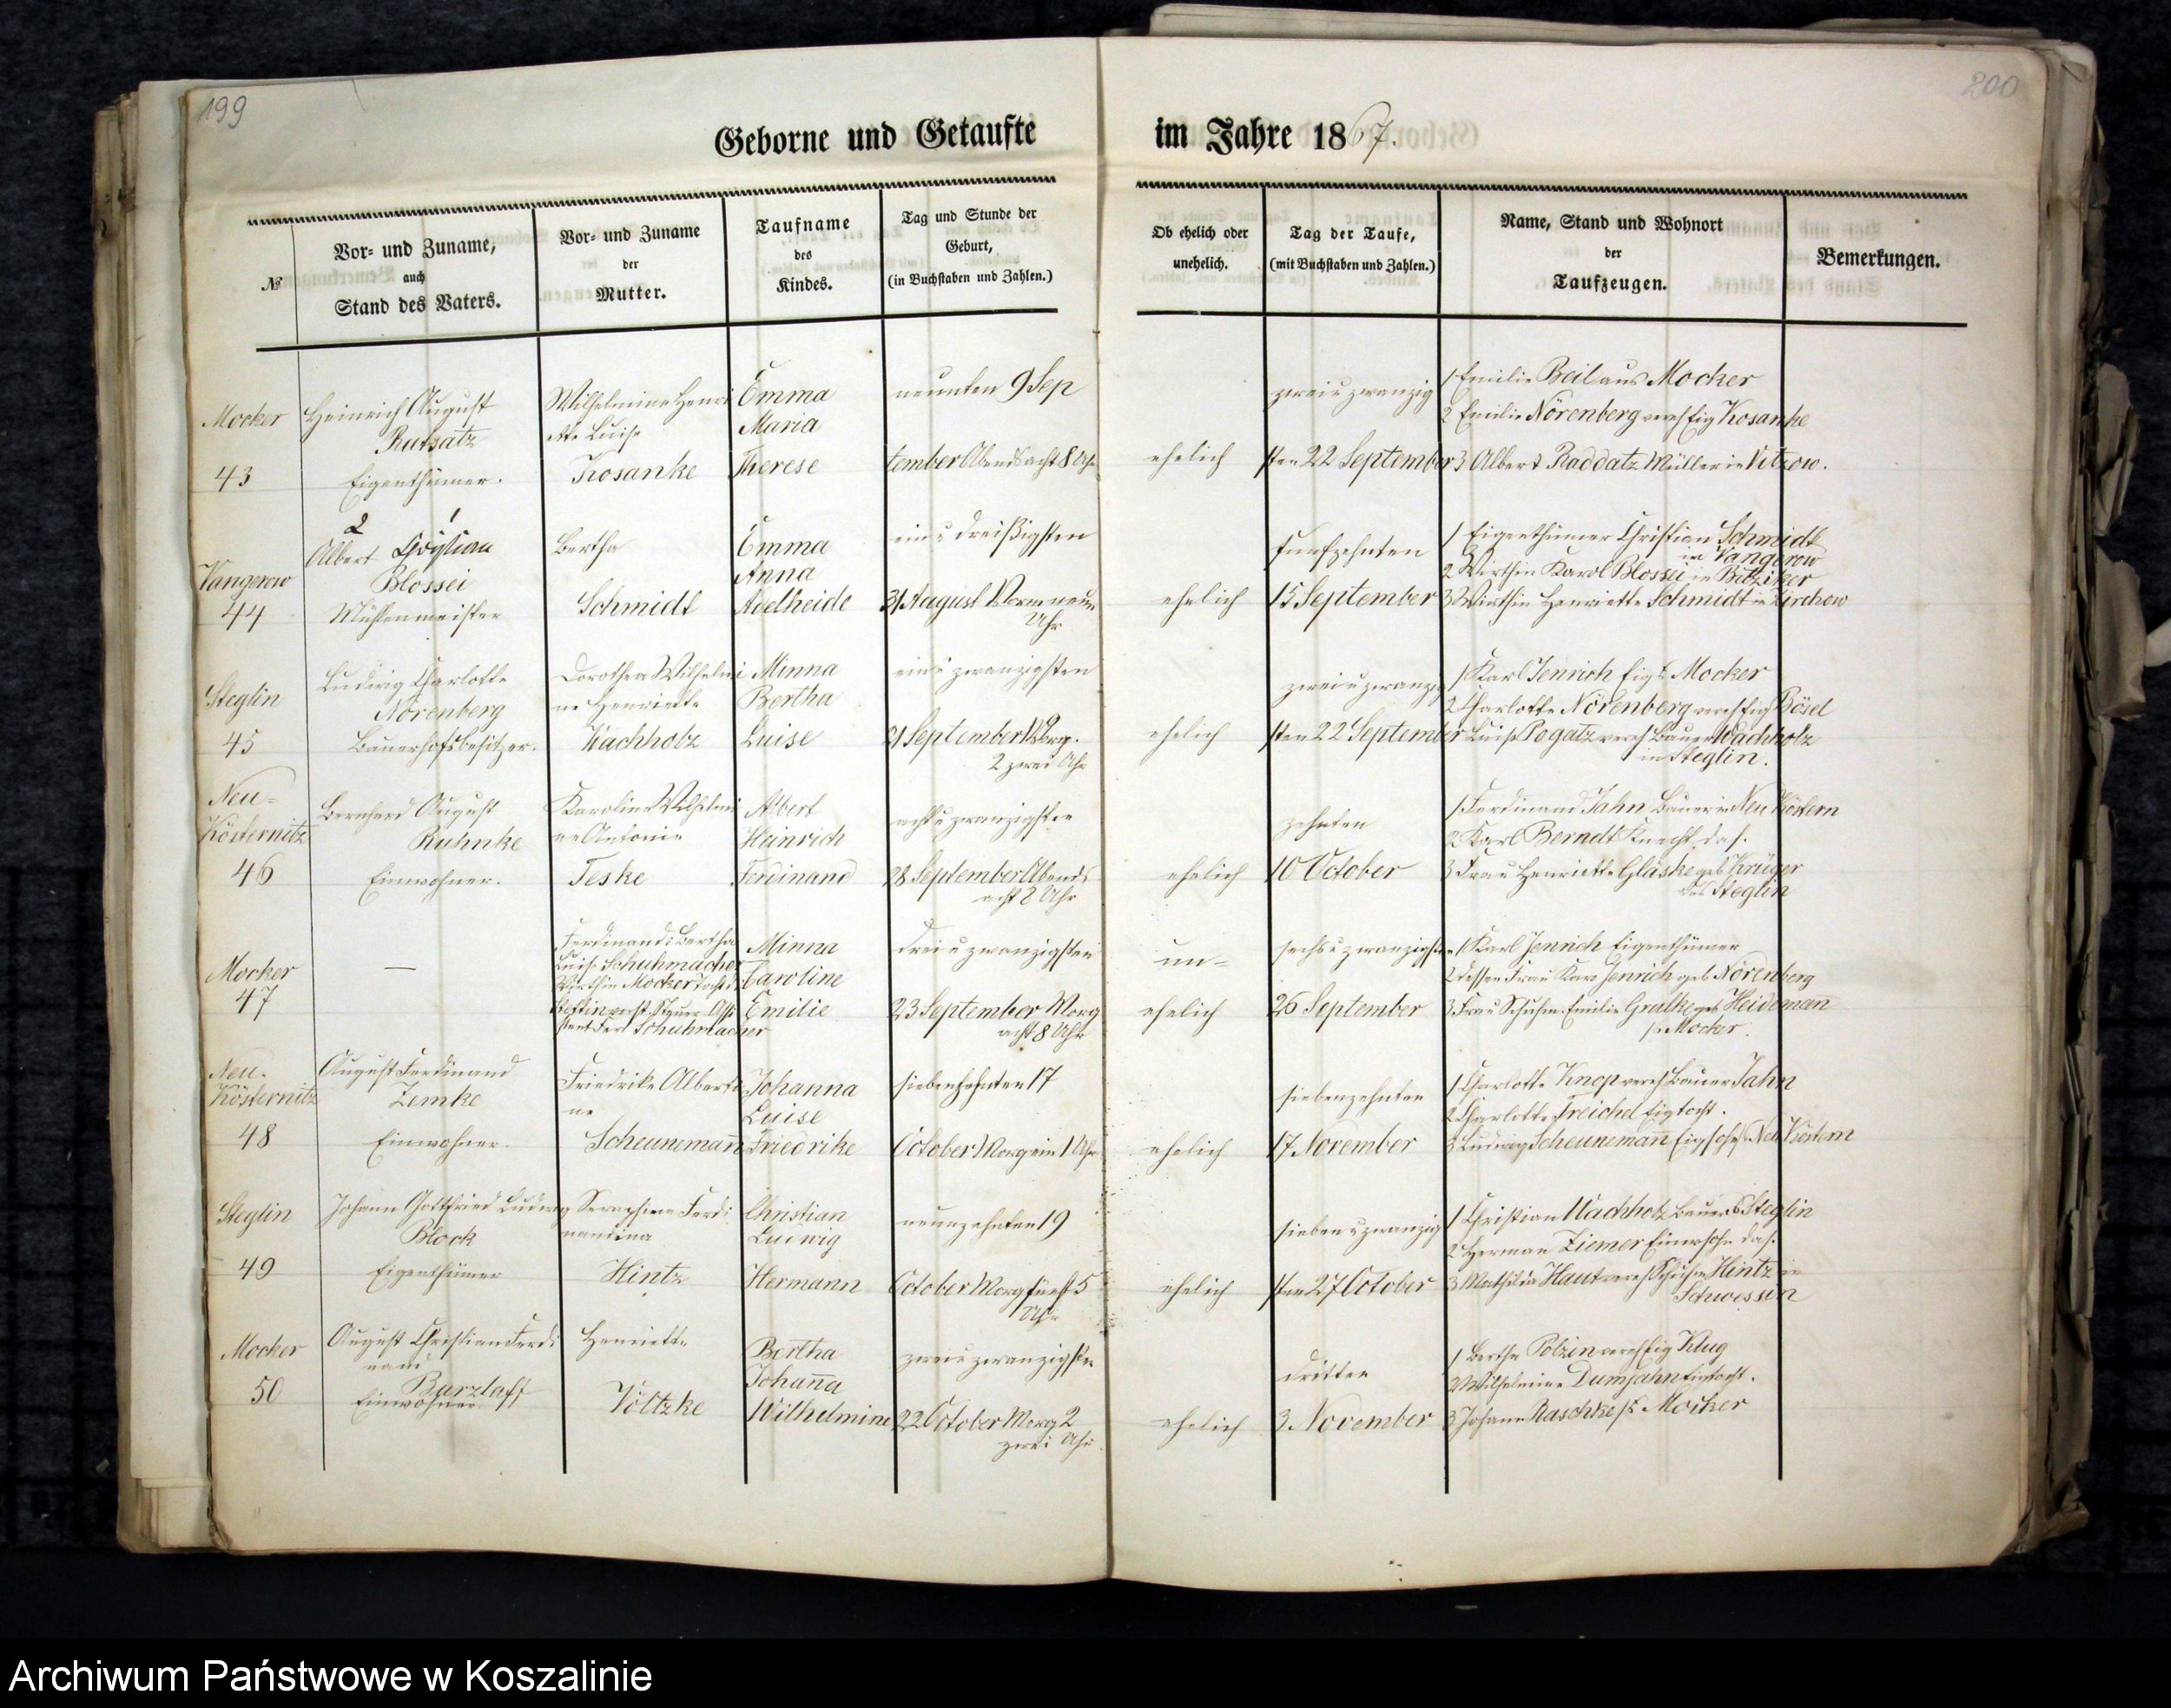 199
200
Geborne und Getaufte
im Jahre 1867.
№
Vor- und Zuname,
auch
Stand des Vaters.
Vor- und Zuname
der
Mutter.
Taufname
des
Kindes.
Tag und Stunde der
Geburt,
(in Buchstaben und Zahlen.)
Ob ehelich oder
unehelich.
Tag der Taufe,
(mit Buchstaben und Zahlen.)
Name, Stand und Wohnort
der
Taufzeugen.
Bemerkungen.
Mocker
43
Heinrich August
Rutzatz
Eigenthümer.
Wilhelmine Henri
ette Luise
Kosanke
Emma
Maria
Therese
neunten 9 Sep
tember Abends acht 8 Uhr
ehelich
zwei u zwanzig
sten 22 September
1 Emilie Beil aus Mocker
2 Emilie Nörenberg vereh Eig Kosanke
3 Albert Raddatz Müller in Vitzow.
Vangerow
44
2 1
Albert Christian
Blossei
Mühlenmeister
Bertha
Schmidt
Emma
Anna
Adelheide
ein u dreißigsten
31 August Vorm neun
Uhr
ehelich
funfzehnten
15 September
1 Eigenthümer Christian Schmidt
in Vangerow
2 Wirthin Karol Blossei in Bitziker
3 Wirthin Henriette Schmidt in Zirchow
Steglin
45
Ludwig Charlotte
Nörenberg
Bauerhofsbesitzer.
Dorothea Wilhelmi
ne Henriette
Wachholz
Minna
Bertha
Luise
ein u zwanzigsten
21 September Morg.
2 zwei Uhr
ehelich
zwei u zwanzig
sten 22 September
1 Karl Jenrich Eig Mocker
2 Charlotte Nörenberg vereh Eig Bösel
Luise Pogatz vereh Bauer Wachholz
in Steglin.
Neu-
Kösternitz
46
Bernhard August
Ruhnke
Einwohner.
Karoline Wilhelmi
ne Antonie
Teske
Albert
Heinrich
Ferdinand
acht u zwanzigsten
28 September Abends
acht 8 Uhr
ehelich
zehnten
10 October
1 Ferdinand Jahn Bauer in Neu Köstern
2 Karl Berndt Knecht das.
3 Frau Henriette Gläske geb Krüger
Steglin
Mocker
47
—
Ferdinand: Bertha
Luise Schuhmacher
Wirthin Mocker Tocht d
Ferd Schuhmacher
Minna
Caroline
Emilie
drei u zwanzigsten
23 September Morg
acht 8 Uhr
un-
ehelich
sechs u zwanzigsten
26 September
1 Karl Jenrich Eigenthümer
2 dessen Frau Karo Jenrich geb Nörenberg
3 Frau Schuhm. Emilie Grulke geb Heidemañ
Mocker.
Neu-
Kösternitz
48
August Ferdinand
Zemke
Einwohner.
Friedrike Alberti
ne
Scheunemañ
Johanna
Luise
Friedrike
siebenzehnten 17
October Morg ein 1 Uhr
ehelich
siebenzehnten
17 November
1 Charlotte Knop vereh Bauer Jahn
2 Charlotte Treichel Eigtocht.
3 Ludwig Scheunemañ Eig sohn Neu Köstern
Steglin
49
Johann Gottfried Ludwig
Block
Eigenthümer
Seraphine Ferdi
nandina
Hintz
Christian
Ludwig
Hermann
neunzehnten 19
October Morg fünf 5
Uhr
ehelich
sieben u zwanzig
sten 27 October
1 Christian Wachholz Bauer Steglin
2 Herman Ziemer Einwohn das.
3 Mathilde Haut vereh Schuhm Hintz in
Schwessin
Mocker
50
August Christian Ferdi
nand
Burzlaff
Einwohner
Henriette
Völtzke
Bertha
Johaña
Wilhelmine
zwei u zwanzigsten
22 October Morg 2
zwei Uhr.
ehelich
dritten
3 November
1 Bertha Polzin vereh Eig Klug
2 Wilhelmine Dumjahn Eigtocht.
3 Johann Raschke Mocker
Archiwum Państwowe w Koszalinie